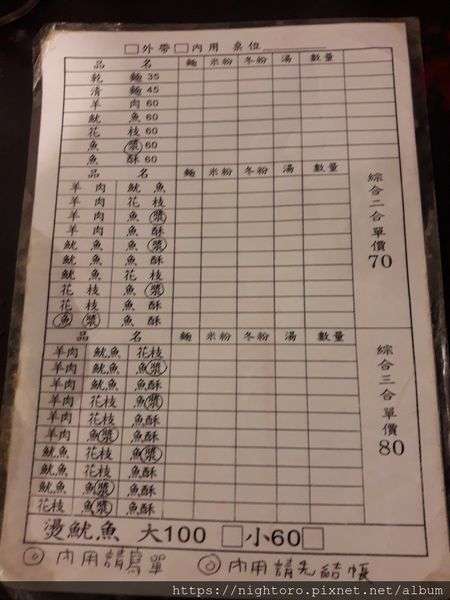 □外帶□內用 桌位
品名 麵 米粉 冬粉 湯 數量
乾麵 35
清麵 45
羊肉 60
魷魚 60
花枝 60
魚漿 60
魚酥 60
品名 麵 米粉 冬粉 湯 數量
羊肉 魷魚
羊肉 花枝
羊肉 魚漿
羊肉 魚酥
魷魚 魚漿
魷魚 魚酥
魷魚 花枝
花枝 魚漿
花枝 魚酥
魚漿 魚酥
綜合二合單價70
品名 麵 米粉 冬粉 湯 數量
羊肉 魷魚 花枝
羊肉 魷魚 魚漿
羊肉 魷魚 魚酥
羊肉 花枝 魚漿
羊肉 花枝 魚酥
羊肉 魚漿 魚酥
魷魚 花枝 魚漿
魷魚 花枝 魚酥
魷魚 魚漿 魚酥
花枝 魚漿 魚酥
綜合三合單價80
燙魷魚 大100 □小60□
◎ 內用請寫單 ◎ 內用請先結帳
https://nightoro.pixnet.net/album